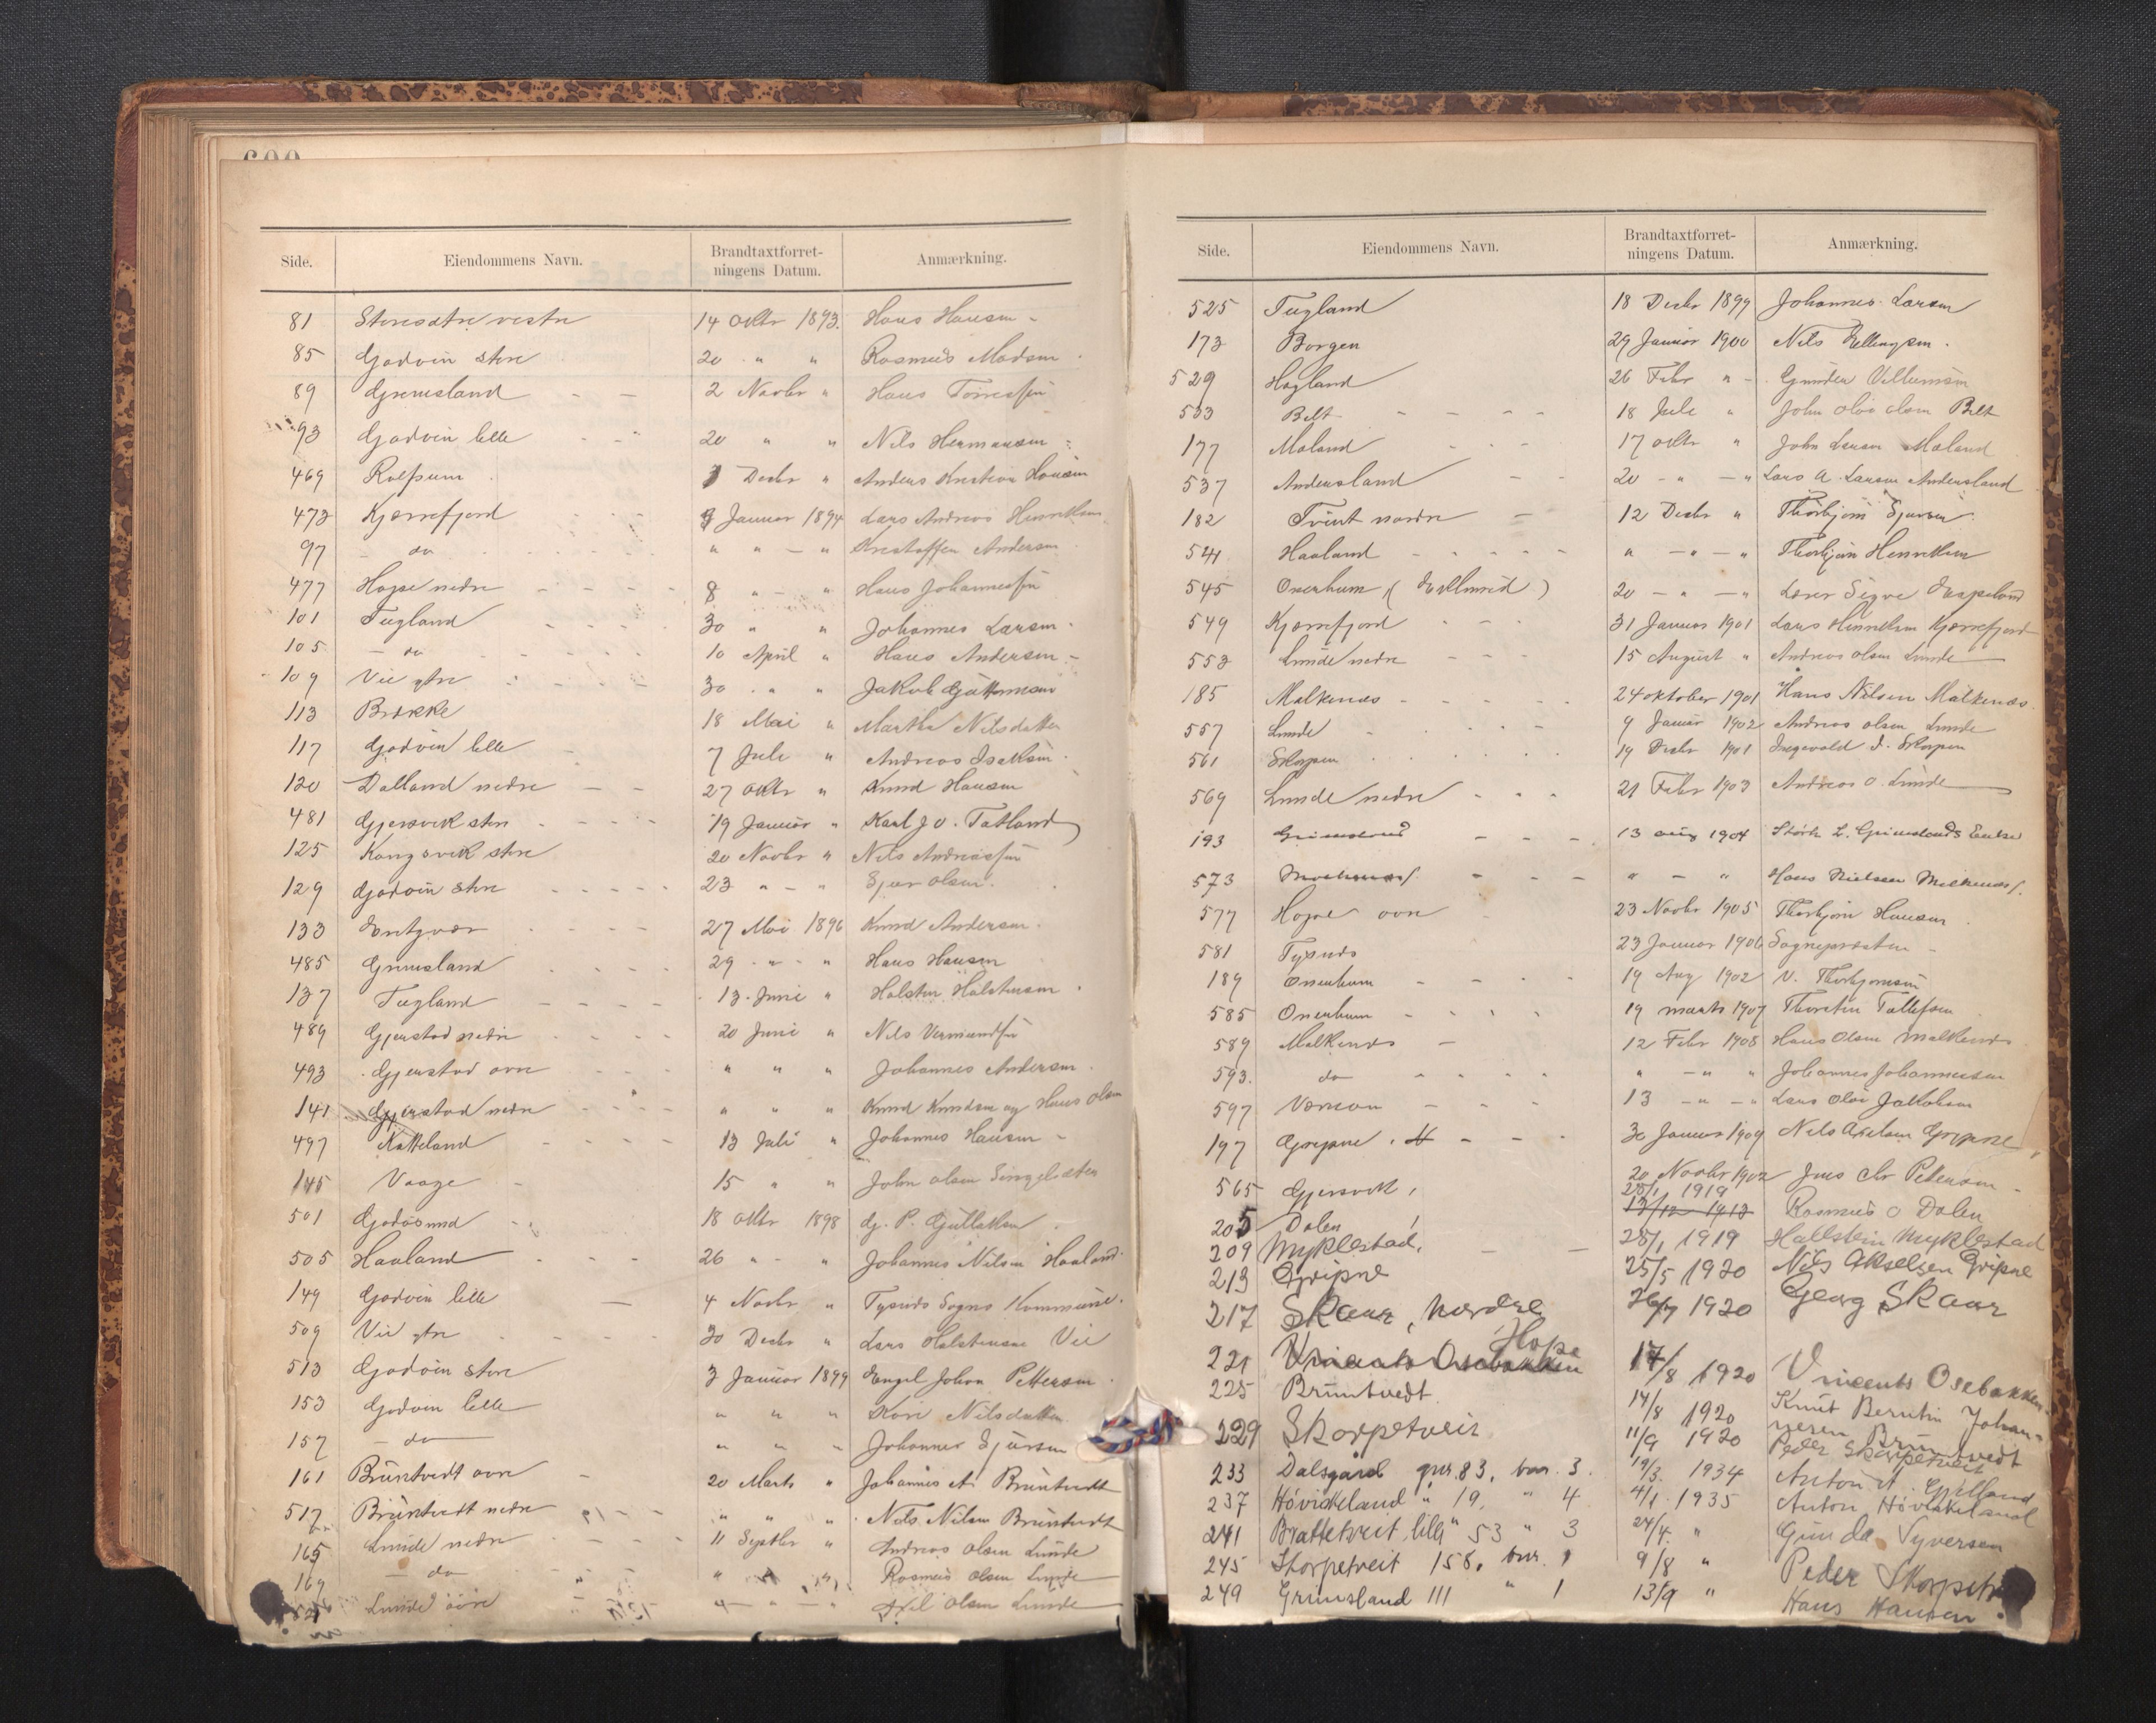 Side. Eiendommens Navn. Brandtaxtforret-ningens Datum. Anmærkning.
81 Stensætre vestre 14 Oktr 1893. Hans Hansen
85 Godøin store 20 " " Rasmus Madsen
89 Gremsland 2 Novbr " Hans Torressen
93 Godøin lille 20 " " Nils Hermansen
469 Rolfsnæs Decbr " Anders Kristian Hansen
473 Kjærrefjord Januar 1894 Lars Andreas Henriksen
97 do " " " Kristoffer Andersen
477 Hope nedre 8 " " Hans Johannessen
101 Tegland 30 " " Johannes Larsen
105 do 10 April " Hans Andersen
109 Vie ytre 30 " " Jakob Guttormsen
113 Brække 18 Mai " Martha Nilsdatter
117 Godøin lille 7 Juli " Andreas Isaksen
120 Dalland nedre 27 Oktr " Knud Hansen
481 Gjersvik store 19 Januar " Karl J. O. Tatland
125 Kongsvik store 20 Novbr " Nils Andreassen
129 Godøin store 23 " " Sjur Olsen
133 27 Mai 1896 Knud Andersen
485 Gremsland 29 " " Hans Hansen
137 Tegland 13 Juni " Halsten Halstensen
489 Gjerstad nedre 20 Juni " Nils Vermundsen
493 Gjerstad øvre " " " Johannes Andersen
141 Gjerstad nedre " " " Knud Knudsen og Hans Olsen
497 Natteland 13 Juli " Johannes Hansen
145 Vaage 15 " " John Olsen Singelsæter
501 Godøsund 18 Oktr 1898 G. P. Gullaksen
505 Haaland 26 " " Johannes Nilsen Haaland
149 Godøin lille 4 Novbr " Tysnæs Sogns Kommune
509 Vie ytre 30 Decbr " Lars Halstensen Vie
513 Godøin store 3 Januar 1899 Engel Johan Pettersen
153 Godøin lille " " " Kari Nilsdatter
157 do " " " Johannes Sjursen
161 Brüntvedt øvre 20 Marts " Johannes A. Brüntvedt
517 Brüntvedt nedre " " " Nils Nilsen Brüntvedt
165 Lunde nedre 11 Septbr " Andreas Olsen Lunde
169 do " " " Rasmus Olsen Lunde
521 Lunde øvre " " " Axel Olsen Lunde
Side. Eiendommens Navn. Brandtaxtforret-ningens Datum. Anmærkning.
525 Tegland 18 Decbr 1899 Johannes Larsen
173 Borgen 29 Januar 1900 Nils Ellingsen
529 Hagland 26 Febr " Gunder Villumsen
533 Belt 18 Juli " John Olai Olsen Belt
177 Maland 17 Oktr " John Larsen Maland
537 Andersland 20 " " Lars A. Larsen Andersland
182 Tveit nordre 12 Decbr " Thorbjørn Sjursen
541 Haaland " " " Thorbjørn Henriksen
545 Onerheim ( ) 20 " " Lærer Sigve Espeland
549 Kjærrefjord 31 Januar 1901 Lars Henriksen Kjærrefjord
553 Lunde nedre 15 August " Andreas Olsen Lunde
185 Malkenæs 24 Oktober 1901 Hans Nilsen Malkenæs
557 Lunde 9 Januar 1902 Andreas Olsen Lunde
561 Skorpen 19 Decbr 1901 Ingevald I. Skorpen
569 Lunde nedre 21 Febr 1903 Andreas O. Lunde
193 Grimsland 13 aug 1904 L. Grimslands Enke
573 Malkenæs " " Hans Nielsen Malkenæs
577 Hope øvre 23 Novbr 1905 Thorbjørn Hansen
581 Tysnæs 23 Januar 1906 Sognepræsten
189 Onerheim 19 Aug 1902 N. Thorbjørnsen
585 Onerheim 19 marts 1907 Thorstein Tollefsen
589 Malkenæs 12 Febr 1908 Hans Olsen Malkenæs
593. do " " " Johannes Johannessen
597 13 " " Lars Olai Jakobsen
197 Gripne 30 Januar 1909 Nils Akselsen Gripne
565 Gjersvik 20 Novbr 1902 Jens Chr Petersen
205 Dalen 28/1 1919 13/12 1913 Rasmus O Dalen
209 Myklestad 28/1 1919 Hallstein Myklestad
213 Gripne 25/5 1920 Nils Akselsen Gripne
217 Skaar, nordre 26/7 1920 Georg Skaar
221 Vincents Osebakken Hope 17/8 1920 Vincents Osebakken
225 Brüntvedt 14/8 1920 Knut Berntin Johan-
nesen Brüntvedt
229 Skorpetveit 11/9 1920 Peder Skorpetveit
233 Dalsgård gnr. 83, bnr. 3. 19/3. 1934 Anton A. Epelland
237 Høviskeland " 19, " 4 4/1. 1935 Anton Høviskeland
241 Brattetveit, lille " 53 " 3 24/4. " Gunda Syversen
245 Skorpetveit 158, bnr. 1 9/8 " Peder Skorpetv
249 Grimsland 111 " 1 13/9 " Hans Hansen